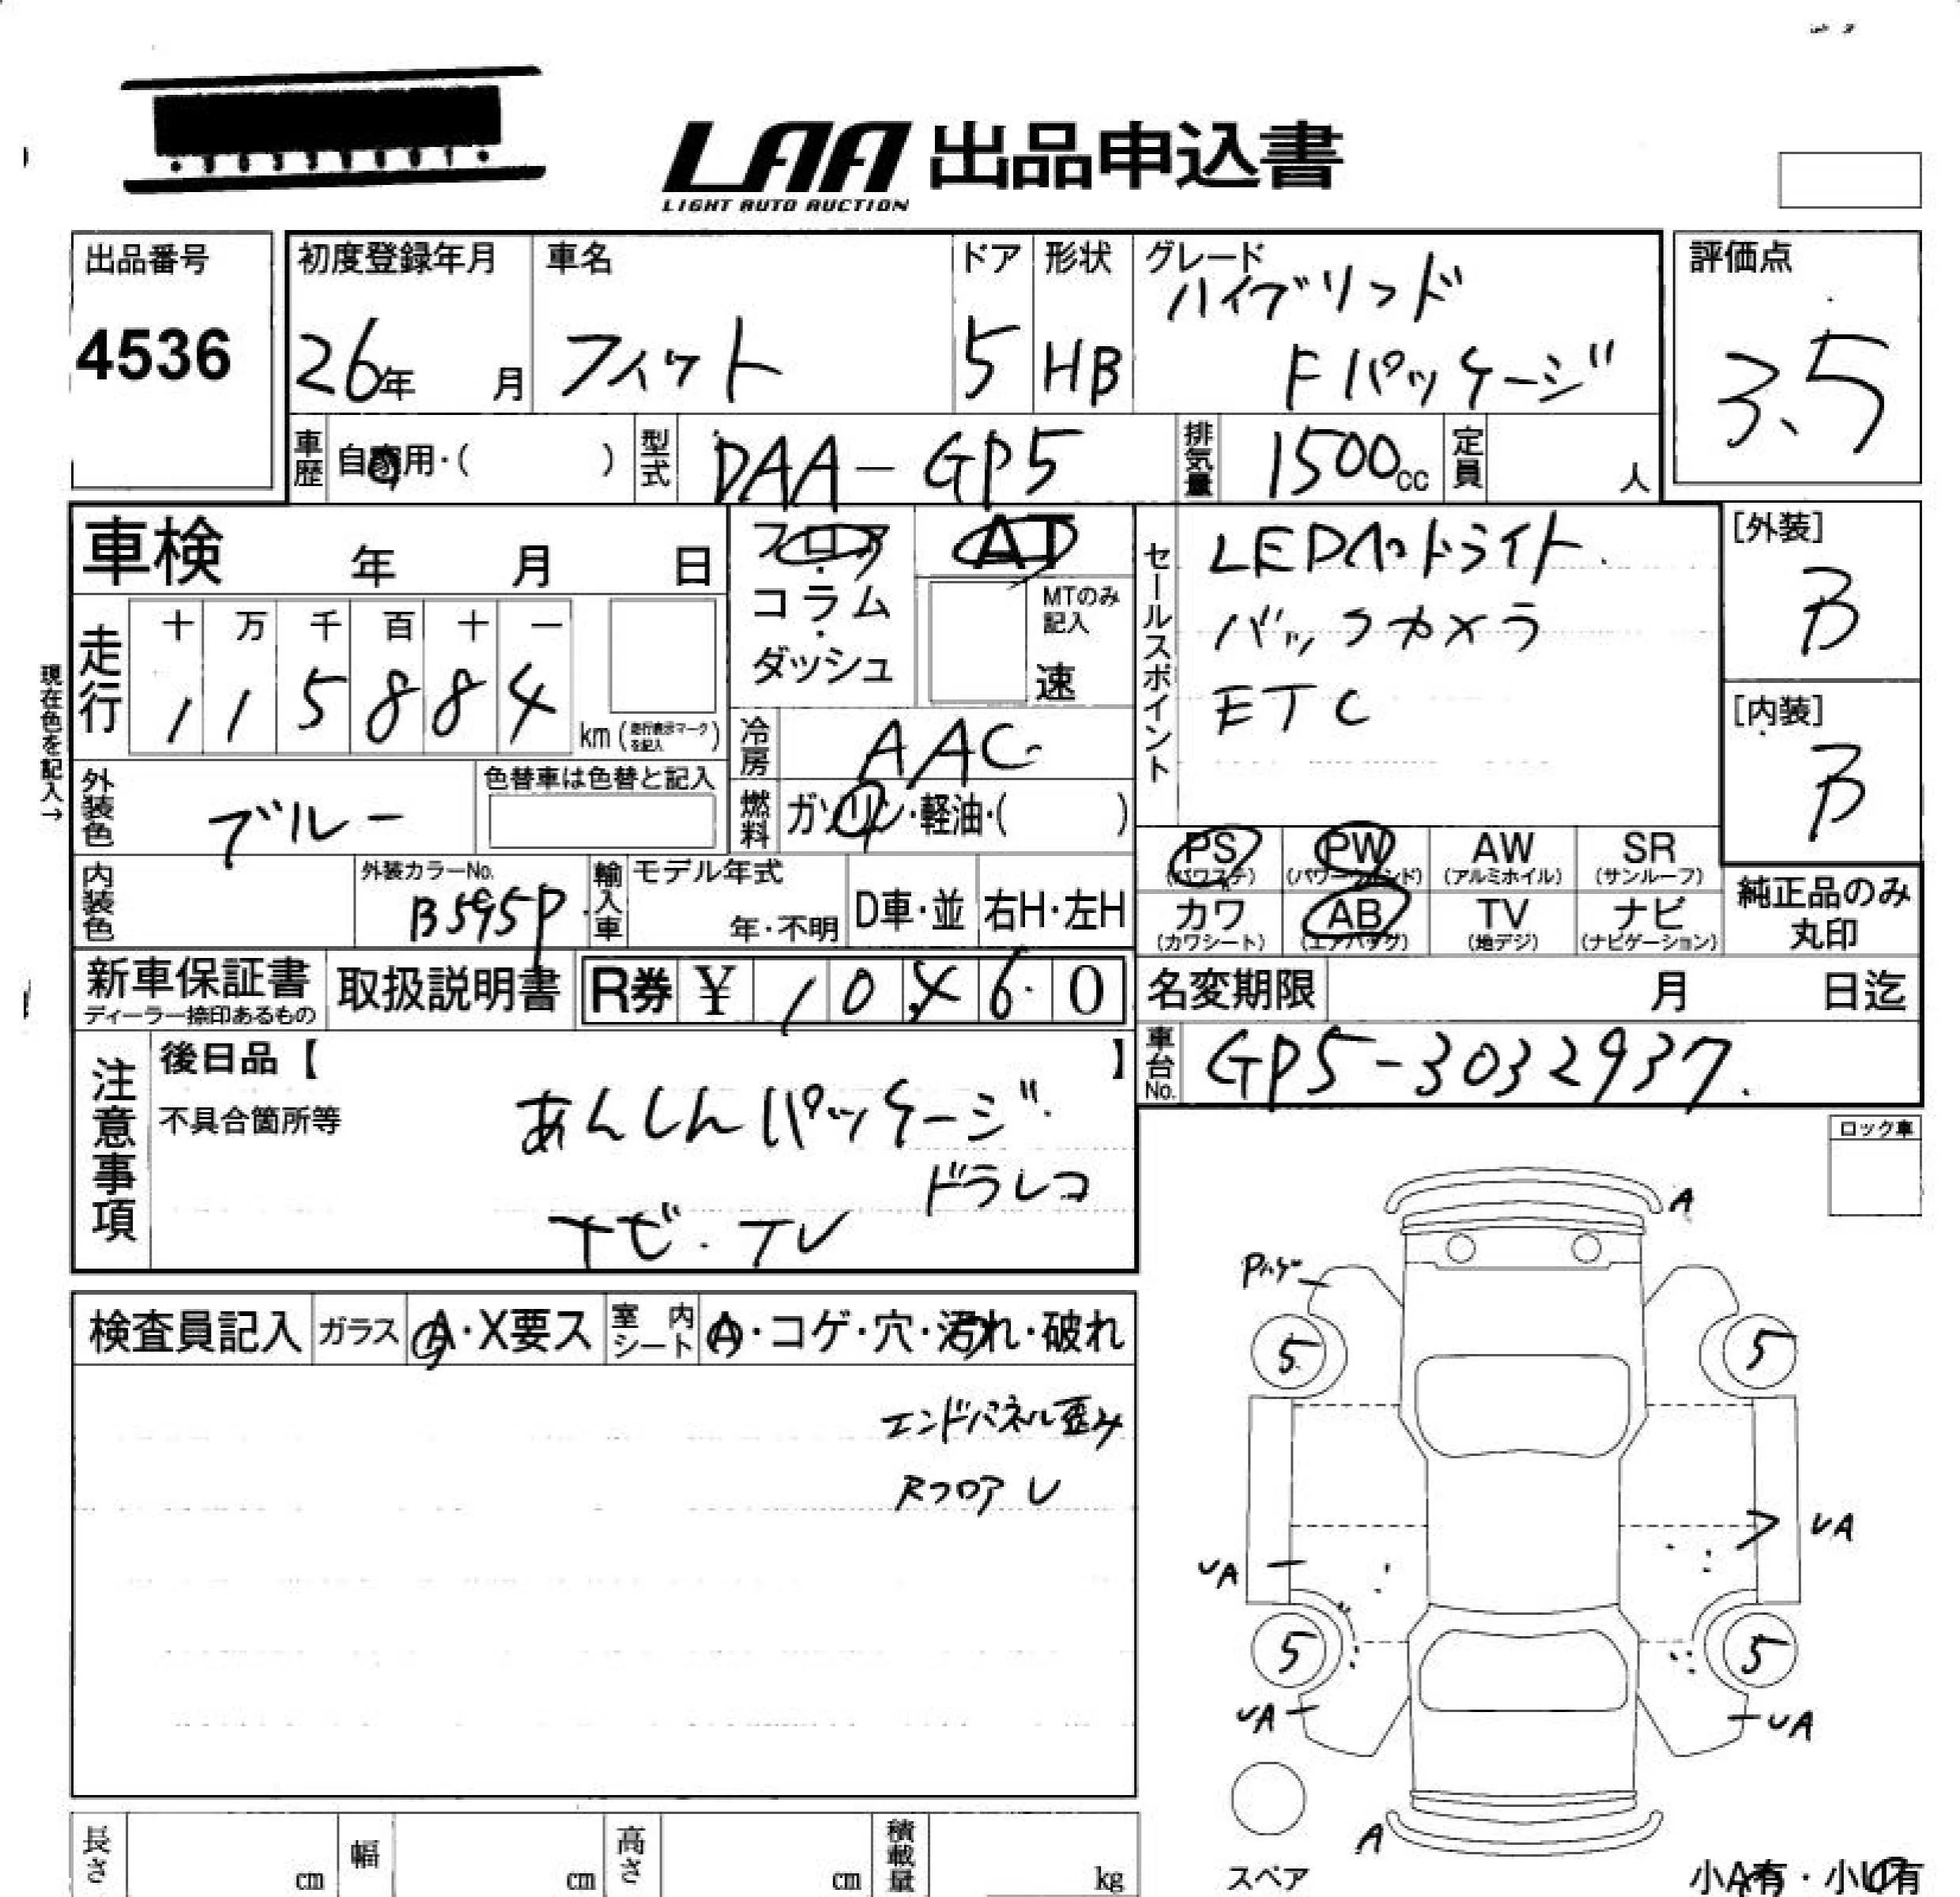 LAA 出品申込書
LIGHT AUTO AUCTION
出品番号
4536
初度登録年月
26年 月
車名
フィット
ドア
5
形状
HB
グレード
ハイブリッド
Fパッケージ
評価点
3.5
車歴 自家用・( )
型式 DAA-GP5
排気量 1500cc
定員 人
車検 年 月 日
走行
十 万 千 百 十 一
1 1 5 8 8 4
km (走行表示マークを記入)
現在色を記入→
フロア
・
コラム
・
ダッシュ
AT
MTのみ
記入
速
冷房 AAC
燃料 ガソリン・軽油・( )
セールスポイント
LEDヘッドライト
バックカメラ
ETC
[外装]
B
[内装]
B
外装色 ブルー
色替車は色替と記入
内装色
外装カラーNo.
B595P
輸入車
モデル年式
年・不明
D車・並
右H・左H
PS (パワステ)
PW (パワーウィンド)
AW (アルミホイル)
SR (サンルーフ)
カワ (カワシート)
AB (エアバッグ)
TV (地デジ)
ナビ (ナビゲーション)
純正品のみ
丸印
新車保証書
ディーラー捺印あるもの
取扱説明書
R券 ¥ 1 0 4 6 0
名変期限 月 日迄
車台No. GP5-3032937
注意事項
後日品【 】
不具合箇所等
あんしんパッケージ
ドラレコ
ナビ・TV
ロック車
検査員記入
ガラス A・X要ス
室内シート A・コゲ・穴・汚れ・破れ
エンドパネル歪み
Rフロア U
A
5
5
UA
UA
5
5
UA
UA
A
スペア
小A有・小U有
長さ cm
幅 cm
高さ cm
積載量 kg